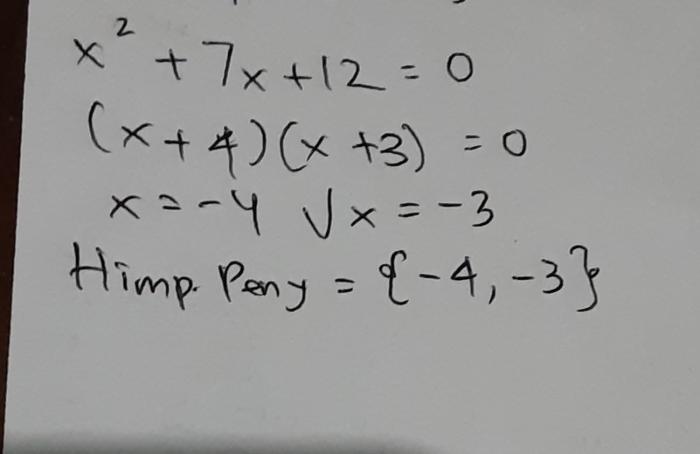 x² + 7x + 12 = 0
(x + 4)(x + 3) = 0
x = -4 ∨ x = -3
Himp. Peny = {-4, -3}